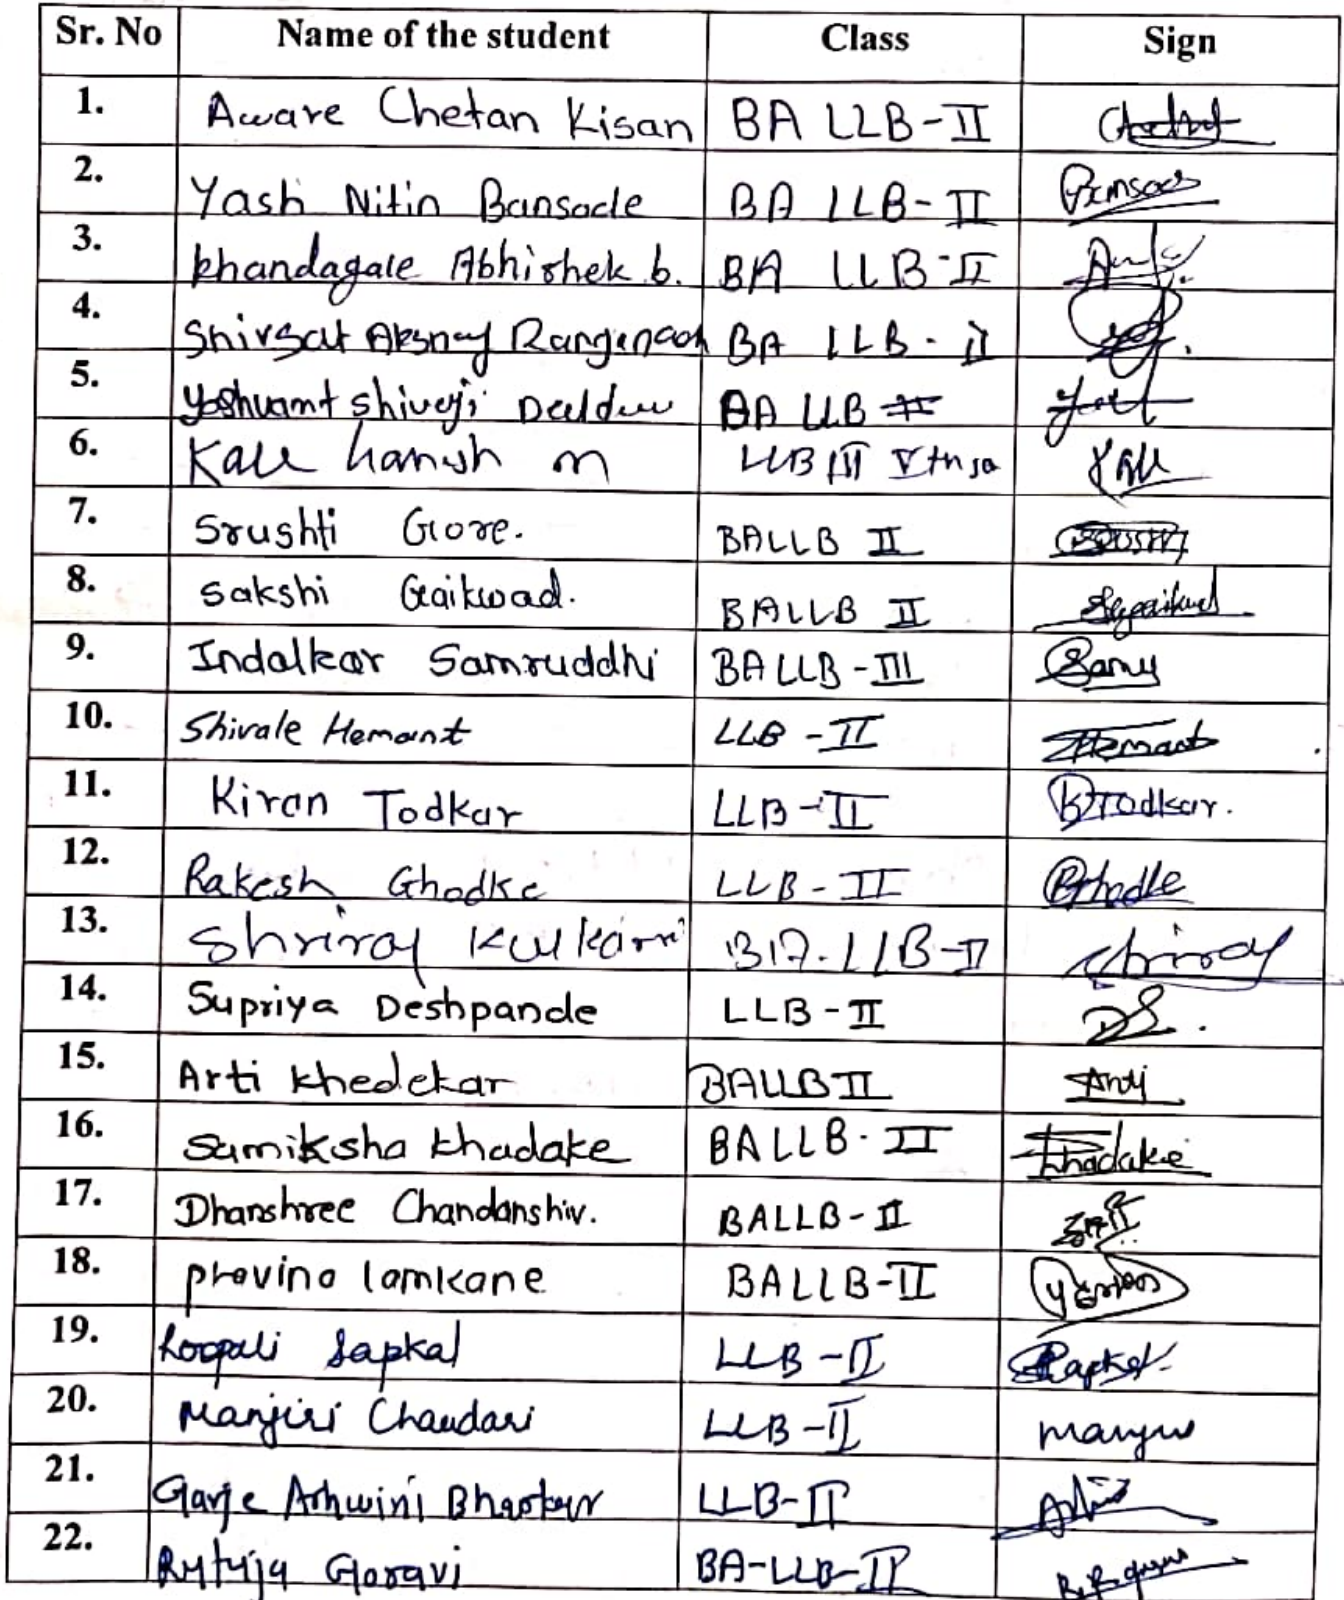 Sr. No Name of the student Class Sign
1. Aware Chetan Kisan BA LLB-II
2. Yash Nitin Bansode BA LLB-II Bansode
3. khandagale Abhishek b. BA LLB-II
4. Shirsat Akshay Ranganath BA LLB-II
5. Yashvant Shivaji BA LLB II
6. Kale m LLB III Vth Kale
7. Srushti Gore. BALLB II
8. Sakshi Gaikwad. BALLB II Sgaikwad
9. Indalkar Samruddhi BALLB-III Samu
10. Shivale Hemant LLB-II Hemant
11. Kiran Todkar LLB-II KTodkar.
12. Rakesh Ghodke LLB-II
13. Shriraj Kulkarni BA.LLB-II Shriraj
14. Supriya Deshpande LLB-II DS.
15. Arti Khedekar BALLB II
16. Samiksha Khadake BALLB-II Khadake
17. Dhanshree Chandanshiv. BALLB-II
18. Pravina lamkane BALLB-II
19. Roopali Sapkal LLB-II Sapkal
20. Manjiri Chaudari LLB-II
21. Garje Ashwini Bhaskar LLB-II
22. Rutuja Goravi BA-LLB-II